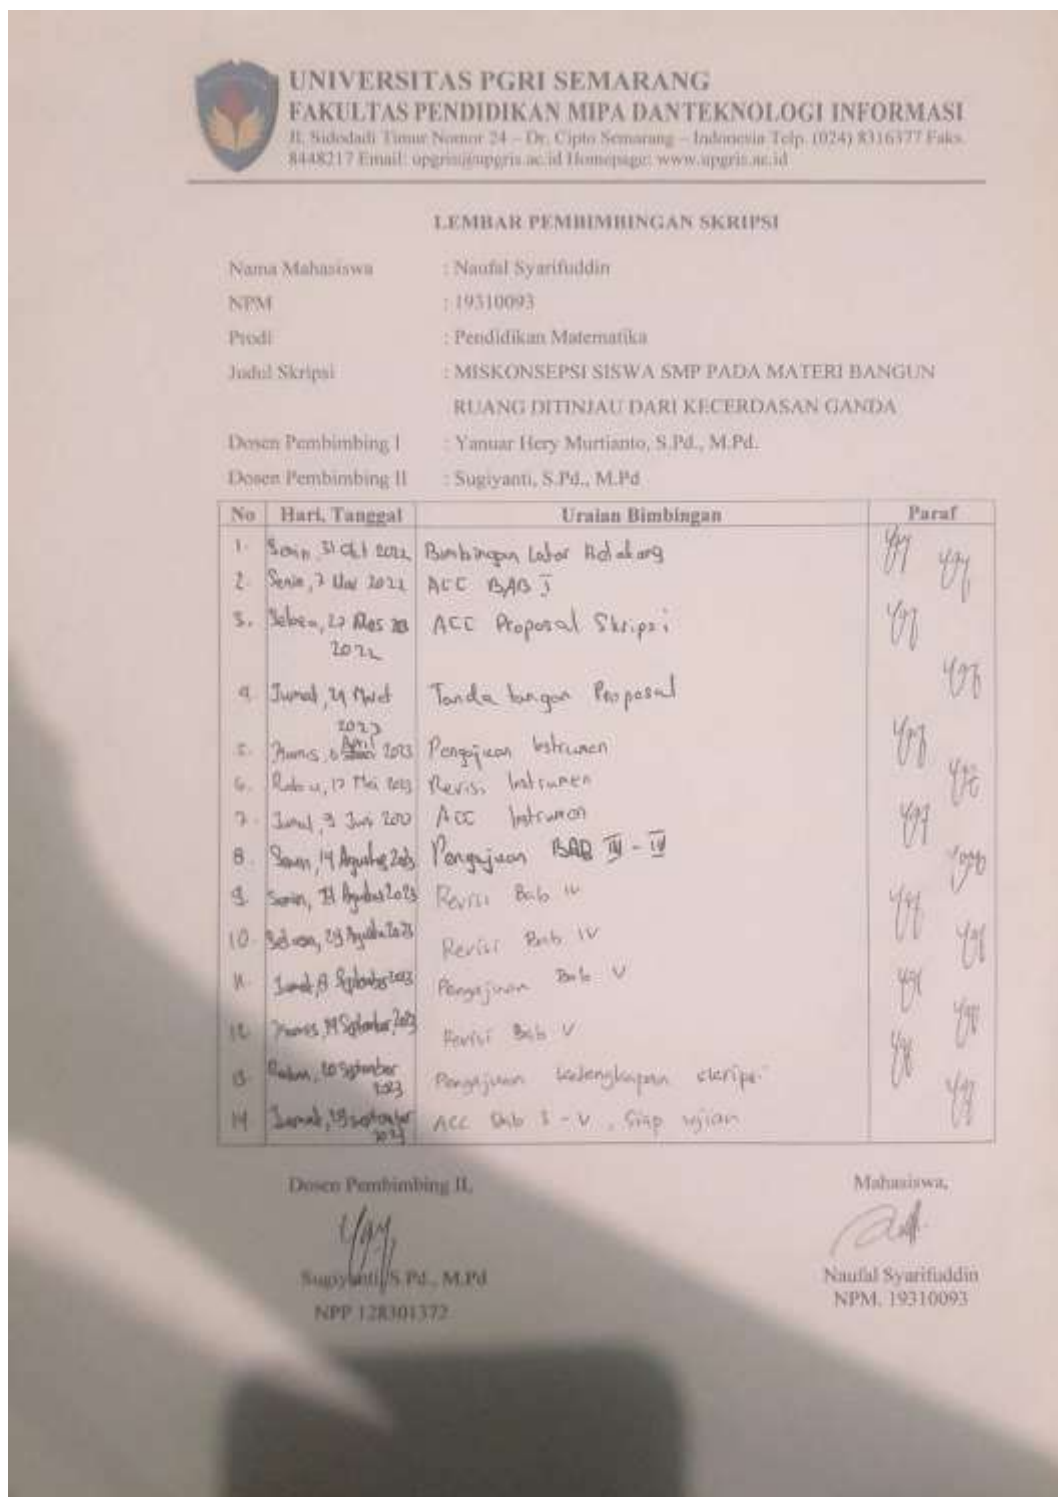 UNIVERSITAS PGRI SEMARANG
FAKULTAS PENDIDIKAN MIPA DANTEKNOLOGI INFORMASI
Jl. Sidodadi Timur Nomor 24 – Dr. Cipto Semarang – Indonesia Telp. (024) 8316377 Faks.
8448217 Email: upgris@upgris.ac.id Homepage: www.upgris.ac.id
LEMBAR PEMBIMBINGAN SKRIPSI
Nama Mahasiswa : Naufal Syarifuddin
NPM : 19310093
Prodi : Pendidikan Matematika
Judul Skripsi : MISKONSEPSI SISWA SMP PADA MATERI BANGUN
RUANG DITINJAU DARI KECERDASAN GANDA
Dosen Pembimbing I : Yanuar Hery Murtianto, S.Pd., M.Pd.
Dosen Pembimbing II : Sugiyanti, S.Pd., M.Pd
No Hari, Tanggal Uraian Bimbingan Paraf
1. Senin, 31 Okt 2022 Bimbingan Latar Belakang
2. Senin, 7 Nov 2022 ACC BAB I
3. 2022 ACC Proposal Skripsi
4. Jumat, 24 Maret 2023 Tanda tangan Proposal
5. Kamis, 6 April 2023 Pengajuan Instrumen
6. Rabu, 17 Mei 2023 Revisi Instrumen
7. Jumat, 9 Juni ACC Instrumen
8. Senin, 14 Agustus 2023 Pengajuan BAB - IV
9. Senin, Agustus 2023 Revisi Bab IV
10. Selasa, 29 Agustus 2023 Revisi Bab IV
11. Jumat, 8 September 2023 Pengajuan Bab V
12. Kamis, 14 September, 2023 Revisi Bab V
13. Rabu, 20 September 2023 Pengajuan kelengkapan skripsi
14 Jumat, September 2023 ACC Bab I - V, Siap ujian
Dosen Pembimbing II, Mahasiswa,
Sugiyanti, S.Pd., M.Pd Naufal Syarifuddin
NPP 128301372 NPM. 19310093